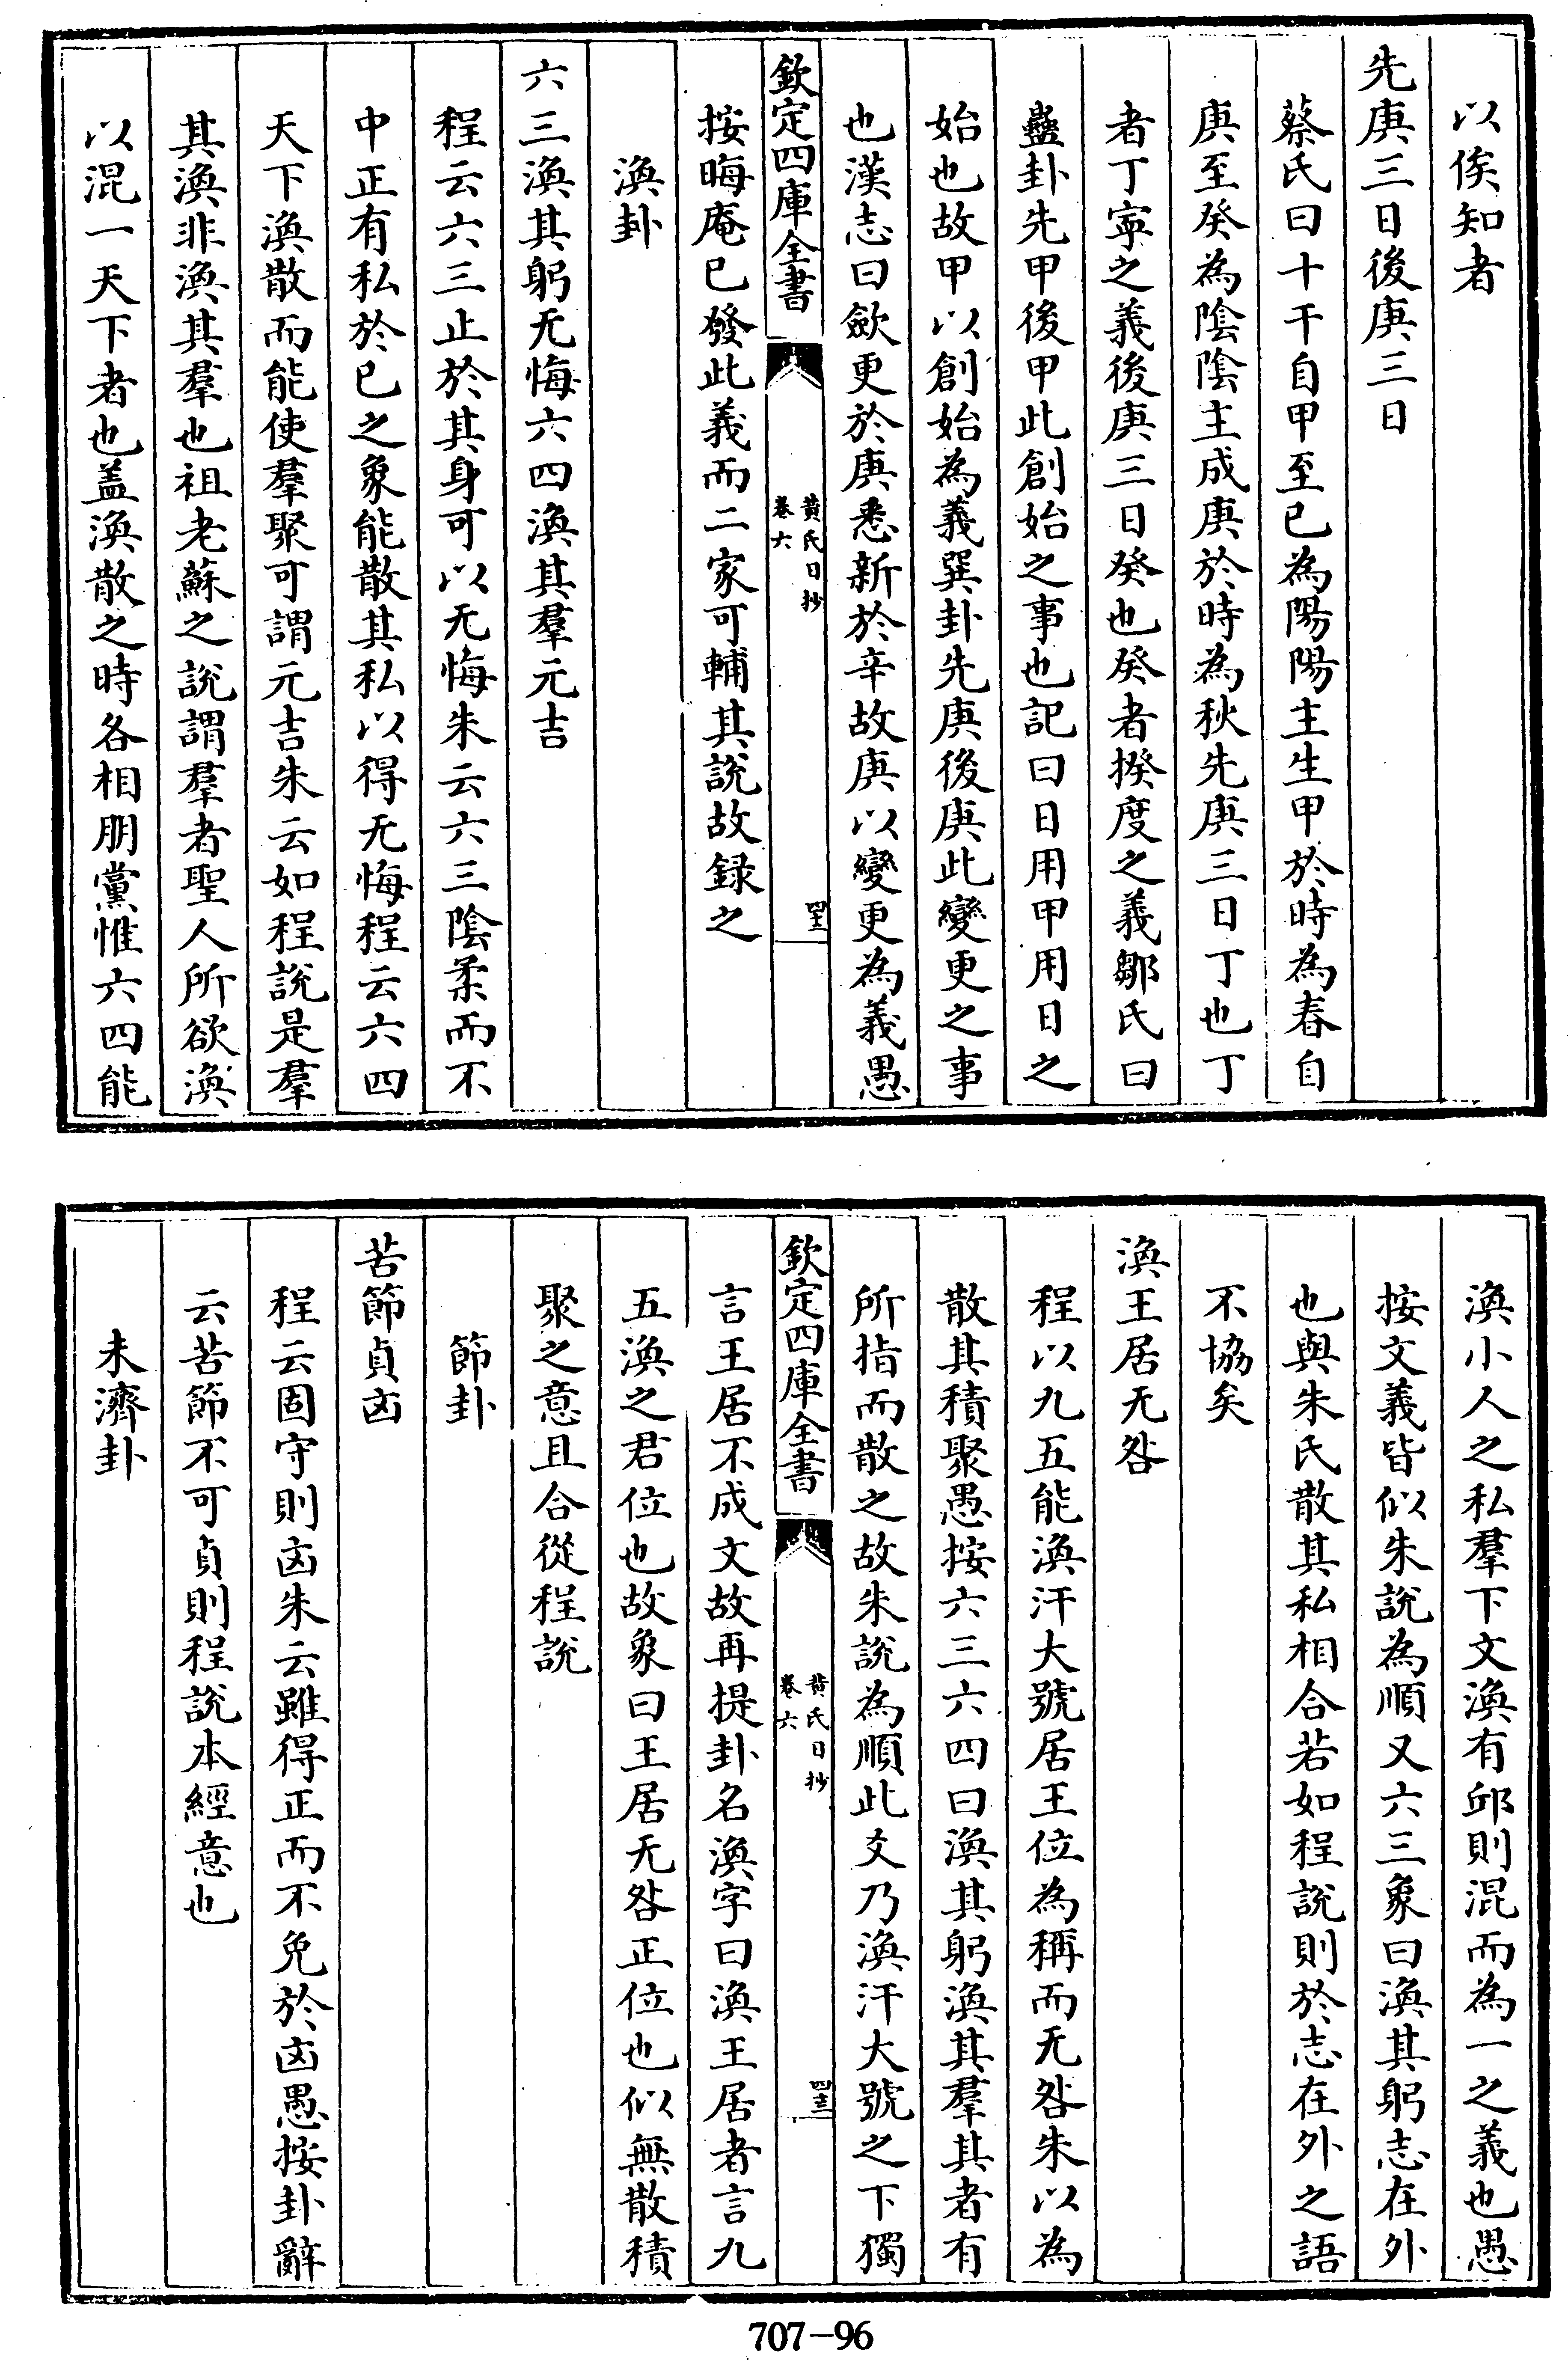 以俟知者
先庚三日後庚三日
蔡氏曰十干自甲至已為陽陽主生甲於時為春自
庚至癸為陰陰主成庚於時為秋先庚三日丁也丁
者丁寧之義後庚三日癸也癸者揆度之義鄒氏曰
蠱卦先甲後甲此創始之事也記曰日用甲用日之
始也故甲以創始為義巽卦先庚後庚此變更之事
也漢志曰斂更於庚悉新於辛故庚以變更為義愚
欽定四庫全書
黄氏日抄
卷六
四十二
按晦庵已發此義而二家可輔其說故録之
渙卦
六三渙其躬无悔六四渙其羣元吉
程云六三止於其身可以无悔朱云六三陰柔而不
中正有私於已之象能散其私以得无悔程云六四
天下渙散而能使羣聚可謂元吉朱云如程說是羣
其渙非渙其羣也祖老蘇之說謂羣者聖人所欲渙
以混一天下者也盖渙散之時各相朋黨惟六四能
渙小人之私羣下文渙有邱則混而為一之義也愚
按文義皆似朱說為順又六三象曰渙其躬志在外
也與朱氏散其私相合若如程說則於志在外之語
不協矣
渙王居无咎
程以九五能渙汗大號居王位為稱而无咎朱以為
散其積聚愚按六三六四曰渙其躬渙其羣其者有
所指而散之故朱說為順此爻乃渙汗大號之下獨
欽定四庫全書
黄氏日抄
卷六
四十三
言王居不成文故再提卦名渙字曰渙王居者言九
五渙之君位也故象曰王居无咎正位也似無散積
聚之意且合從程說
節卦
苦節貞凶
程云固守則凶朱云雖得正而不免於凶愚按卦辭
云苦節不可貞則程說本經意也
未濟卦
707-96